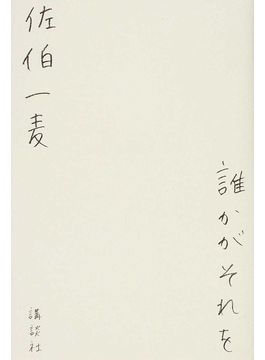 誰かがそれを
佐伯一麦
講談社